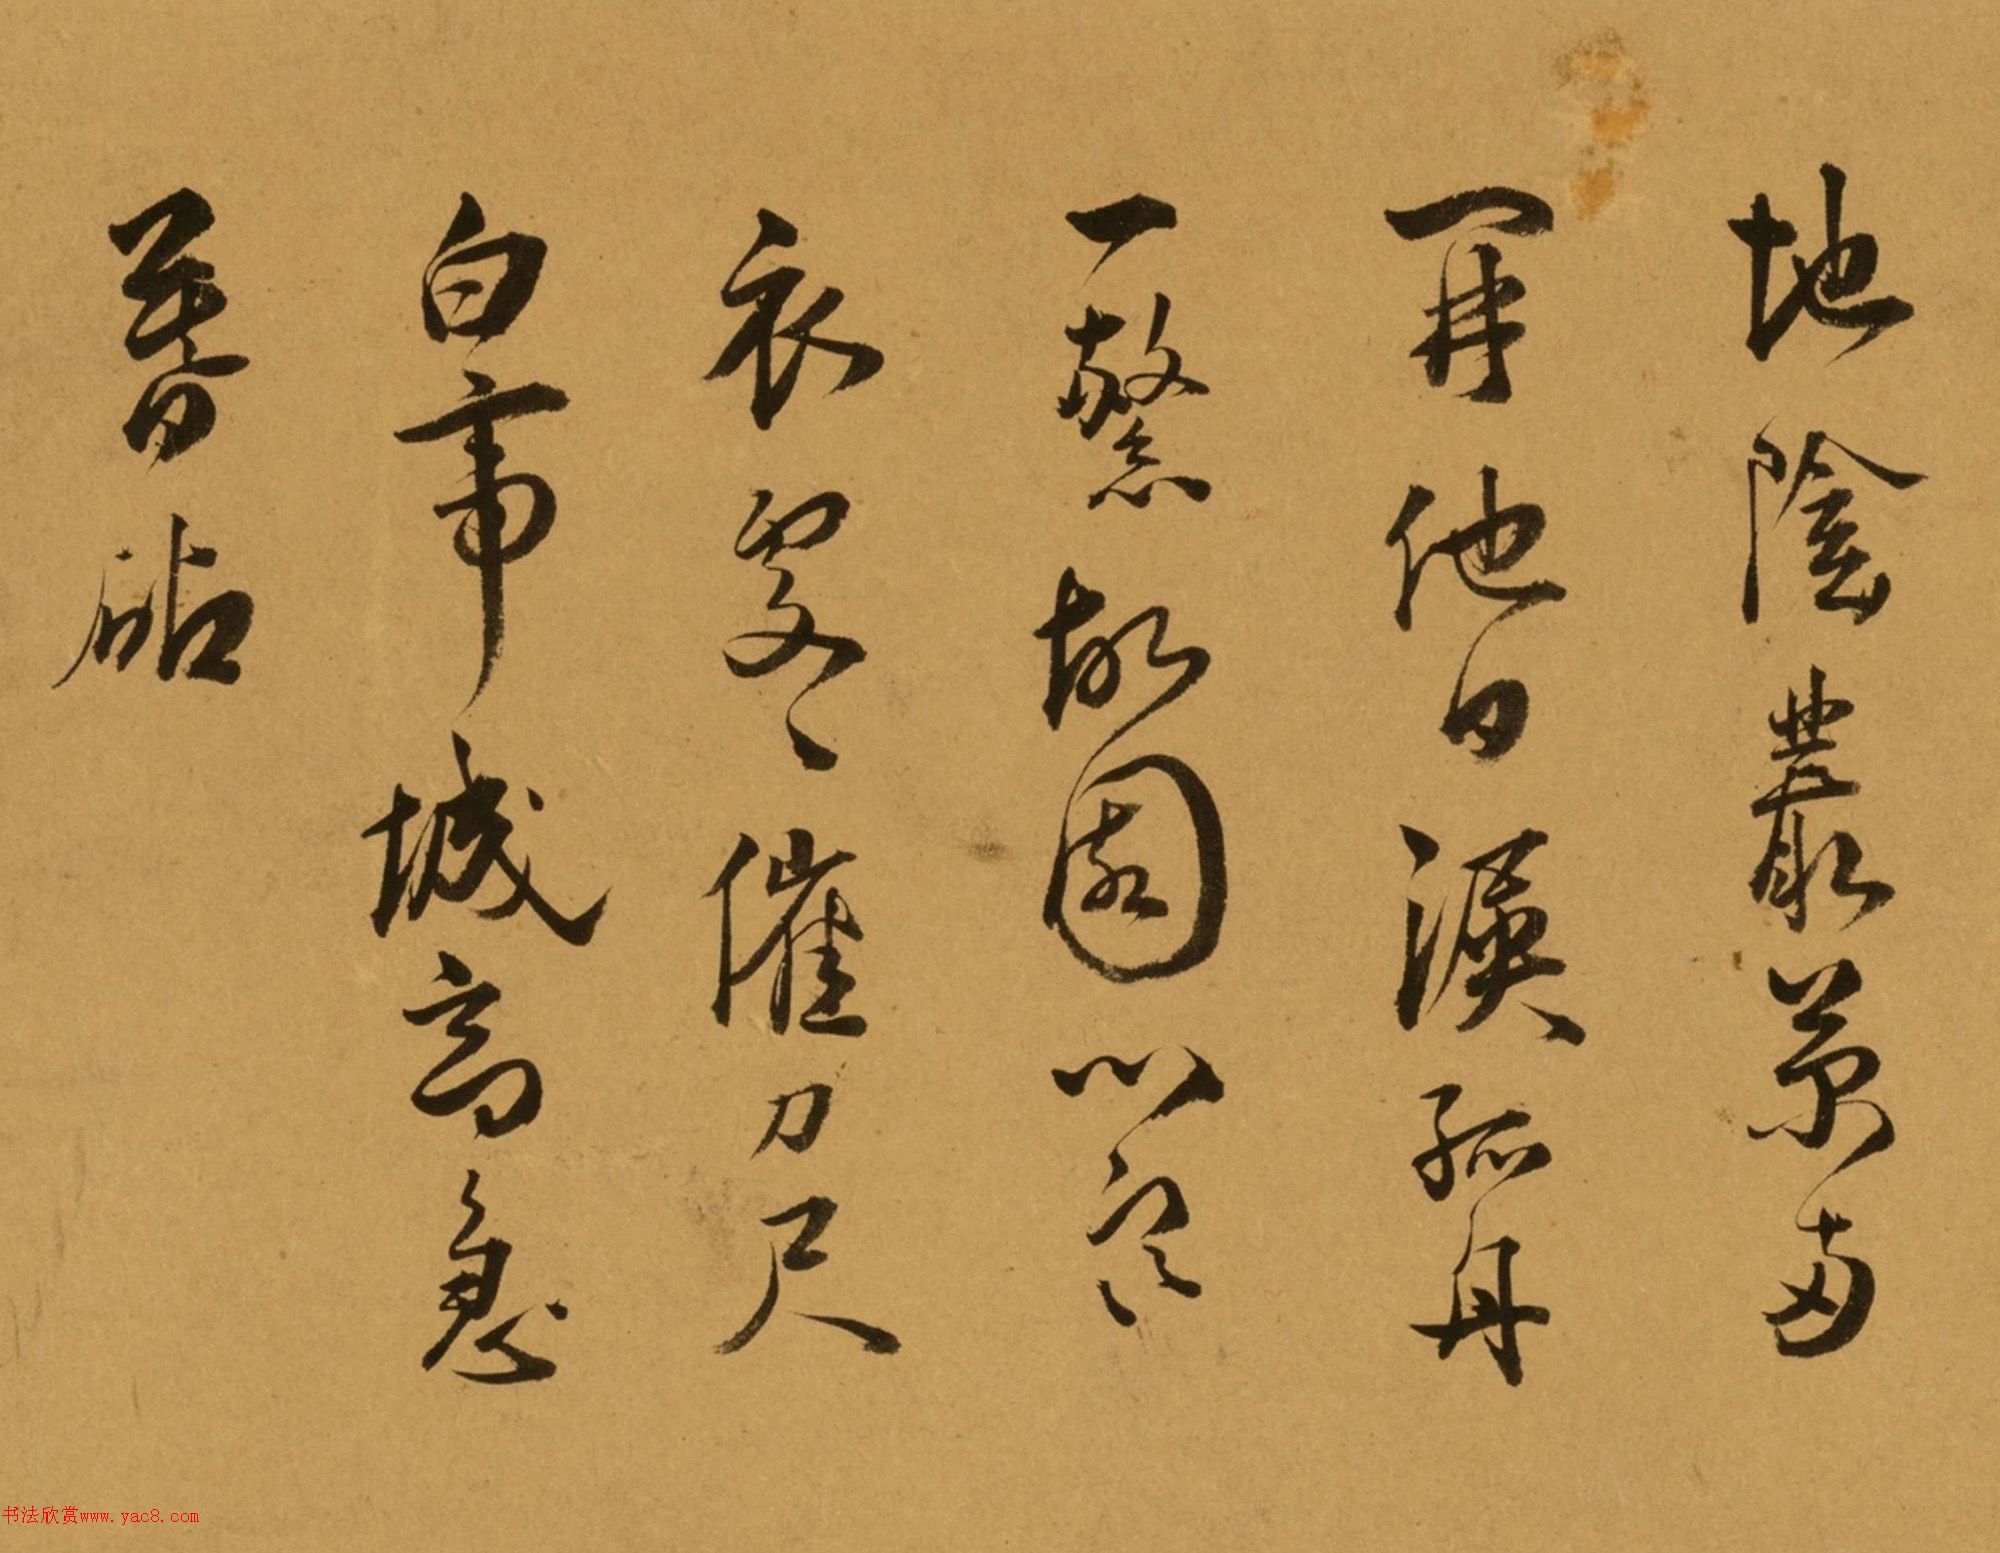 地陰叢菊兩
開他日淚孤舟
一繫故園心寒
衣處〻催刀尺
白帝城高急
暮砧
书法欣赏www.yac8.com